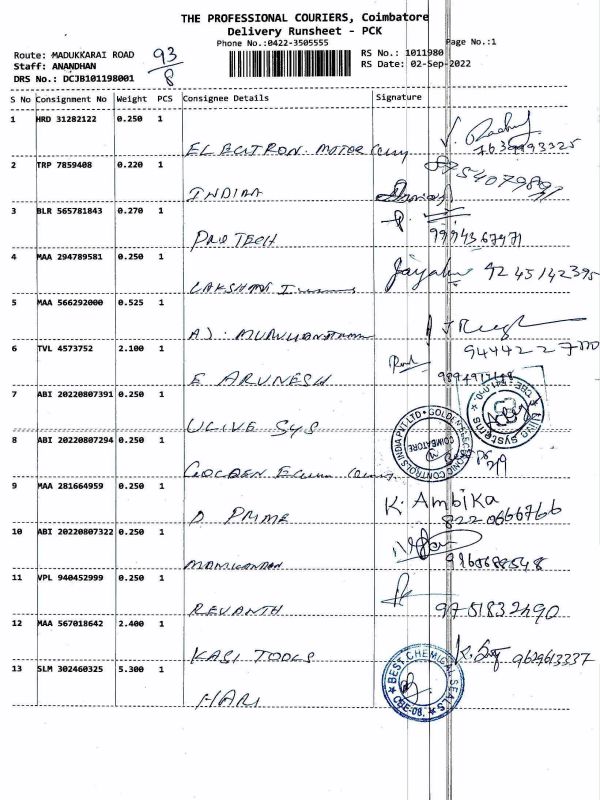 THE PROFESSIONAL COURIERS, Coimbatore
Delivery Runsheet - PCK
Phone No.:0422-3505555
Page No.:1
Route: MADUKKARAI ROAD
Staff: ANANDHAN
DRS No.: DCJB101198001
93
8
RS No.: 1011980
RS Date: 02-Sep-2022
S No Consignment No Weight PCS Consignee Details Signature
1 HRD 31282122 0.250 1
ELECITRON. MOTOR
2 TRP 7859408 0.220 1
INDIAA
3 BLR 565781843 0.270 1
PRO TECH 9994367471
4 MAA 294789581 0.250 1
LAKSHMI 9245142395
5 MAA 566292000 0.525 1
A).
6 TVL 4573752 2.100 1
E ARUNESH
7 ABI 20220807391 0.250 1
ULIVE SYS
8 ABI 20220807294 0.250 1
GOLDEN
GOLDEN ELECTRONIC CONTROLS INDIA PVT LTD
COIMBATORE
9 MAA 281664959 0.250 1
D. PRIME K. Ambika
8220666766
10 ABI 20220807322 0.250 1
MANIKANDAN
11 VPL 940452999 0.250 1
REVANTH 9751832490
12 MAA 567018642 2.400 1
KASI TOOLS 9629613337
13 SLM 302460325 5.300 1
HARI
BEST CHEMICAL SEALS
CBE-08.